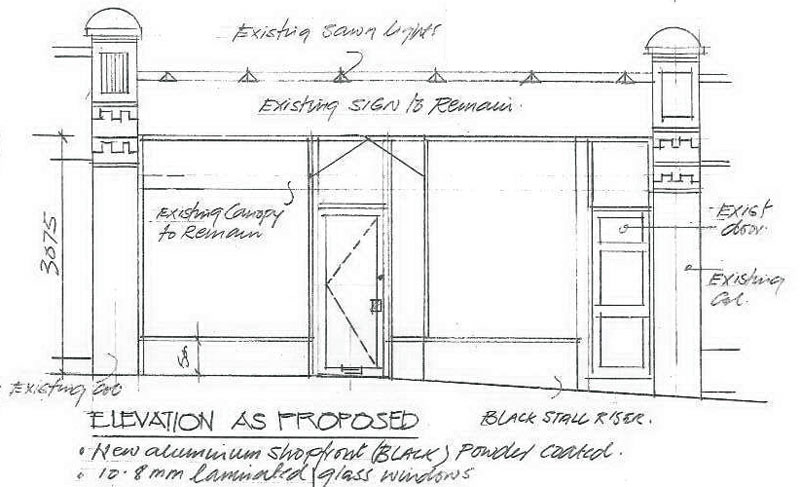 Existing Sawn Lights
Existing SIGN to Remain.
Existing Canopy
to Remain
3075
EXIST
door.
Existing
Col.
Existing Col
ELEVATION AS PROPOSED
BLACK STALL RISER.
• New aluminium shopfront (BLACK) Powder coated.
• 10.8mm laminated glass windows